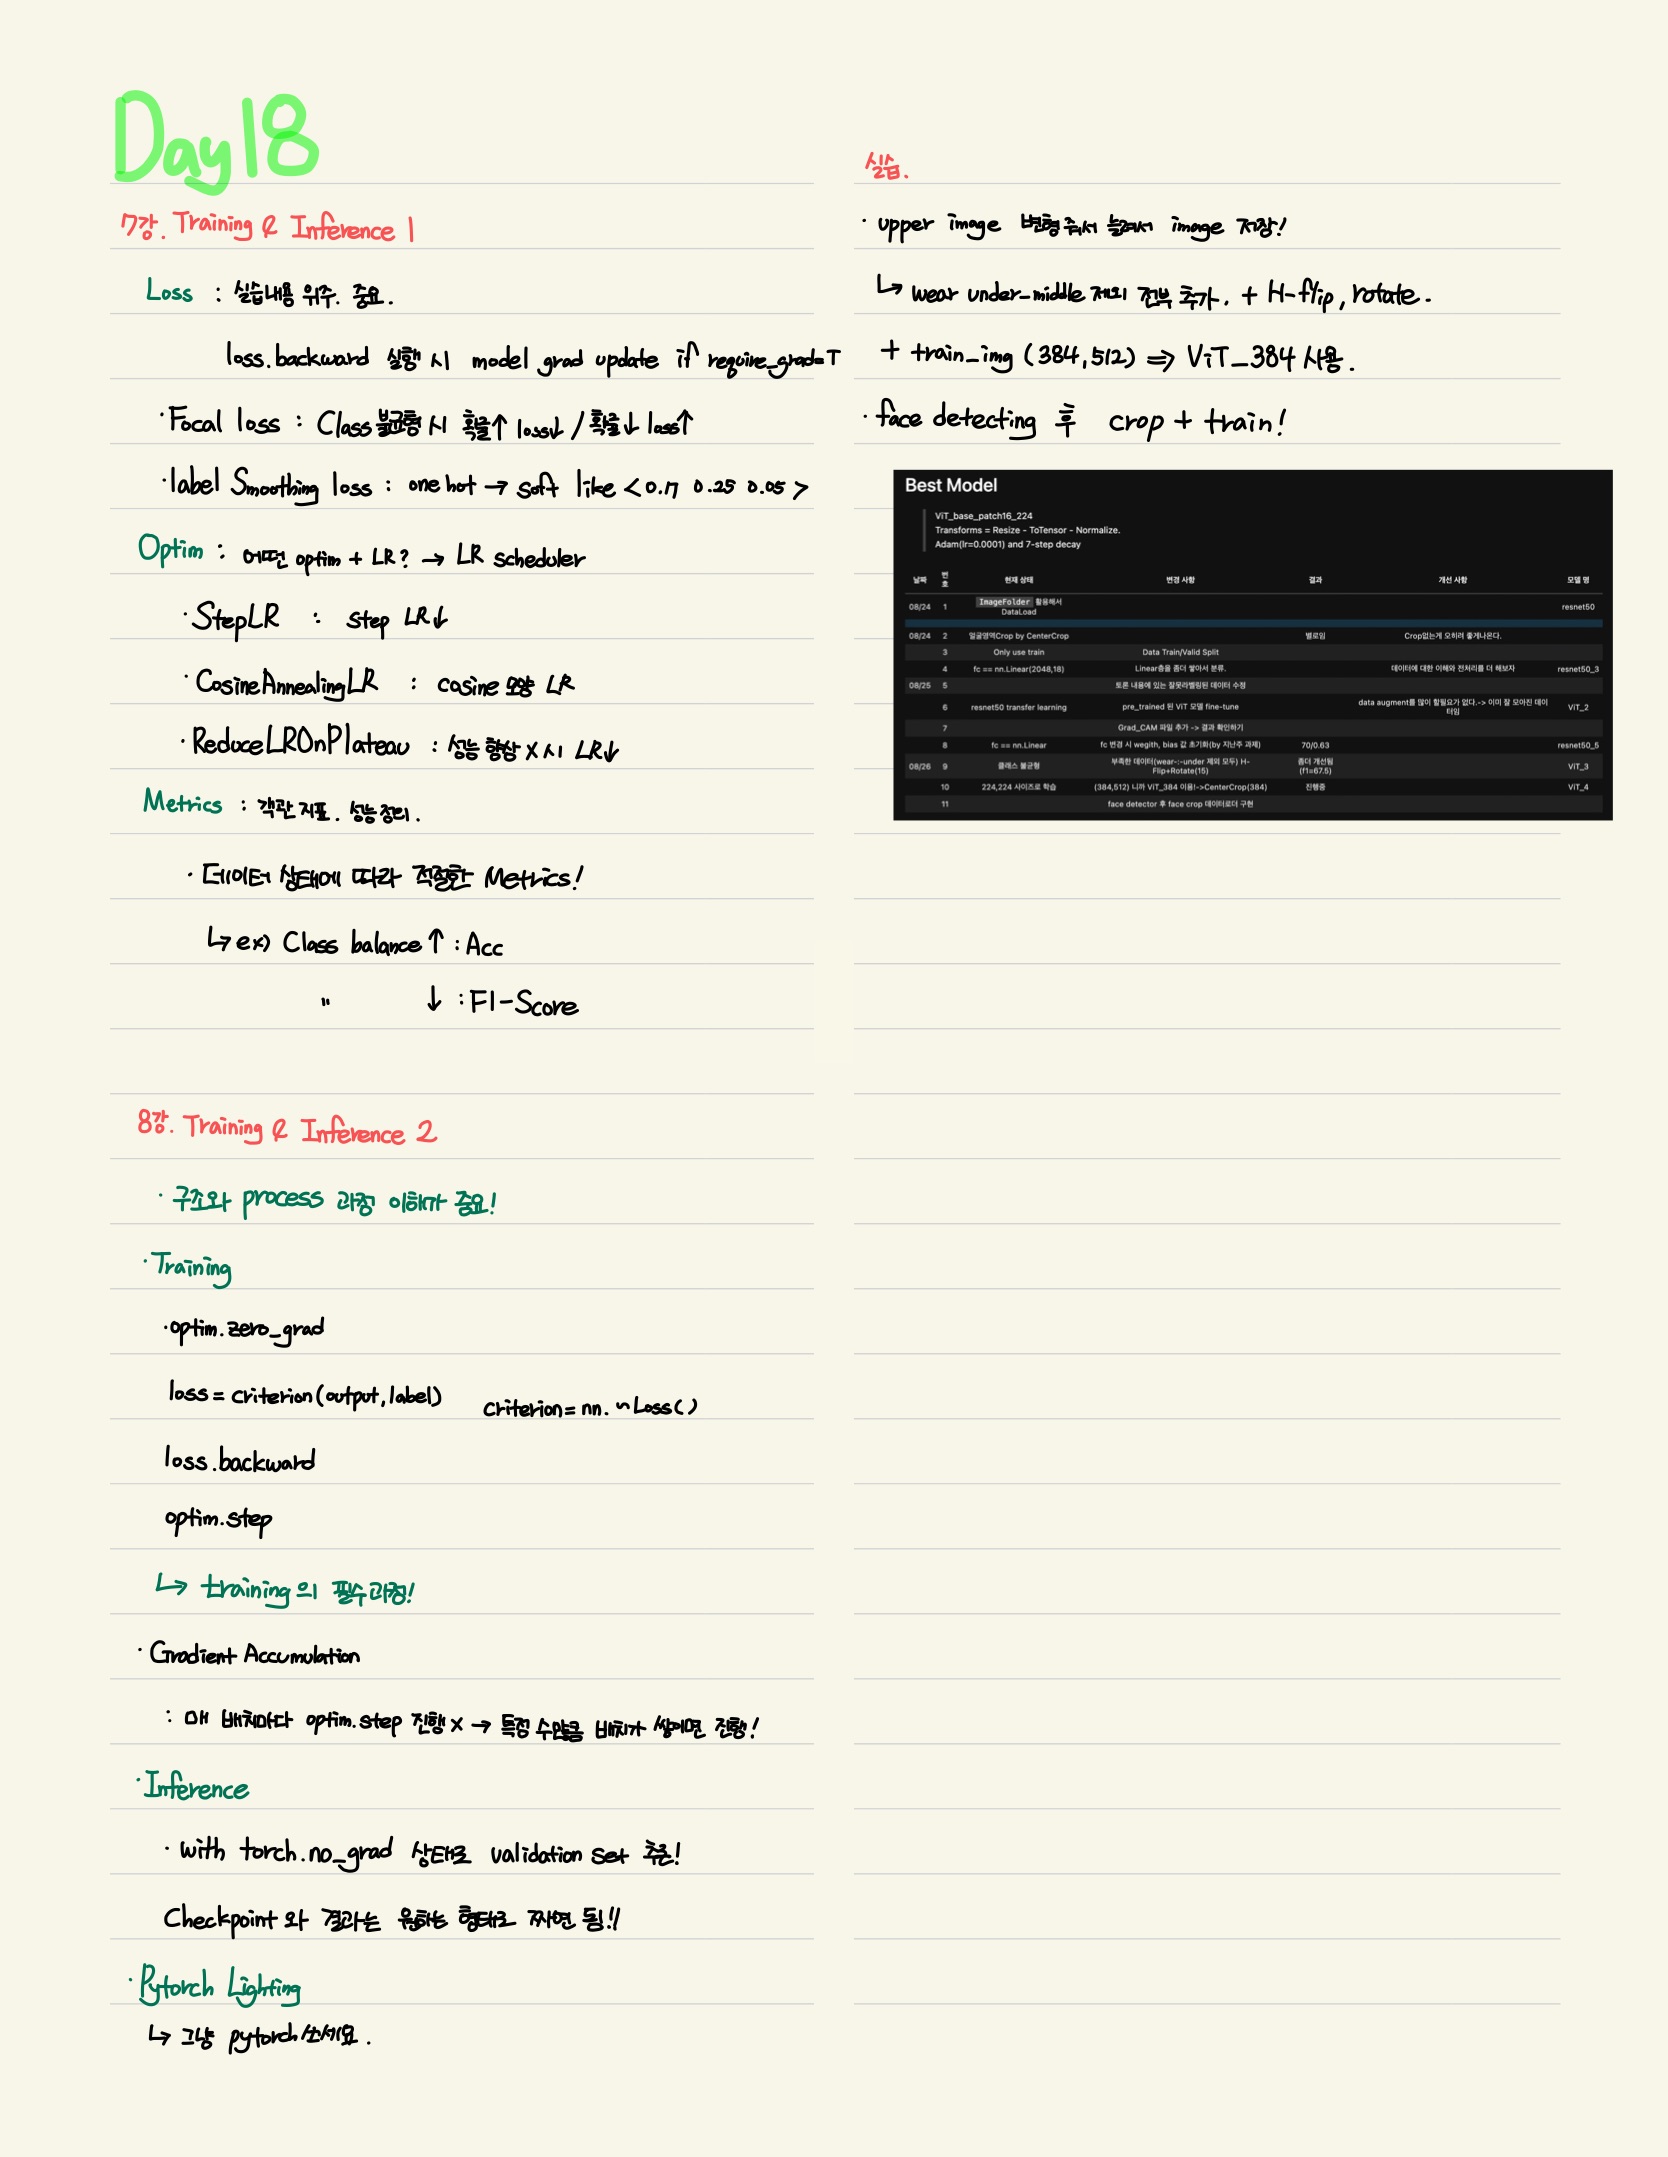 Day18
7강. Training & Inference 1
Loss : 실습내용 위주. 중요.
loss.backward 실행 시 model grad update if require_grad=T
· Focal loss : Class 불균형 시 확률↑ loss↓ / 확률↓ loss↑
· label Smoothing loss : one hot → soft like <0.7 0.25 0.05>
Optim : 어떤 optim + LR? → LR scheduler
· StepLR : step LR↓
· CosineAnnealingLR : cosine 모양 LR
· ReduceLROnPlateau : 성능 향상 X 시 LR↓
Metrics : 객관 지표. 성능 정리.
· 데이터 상태에 따라 적절한 Metrics!
↳ ex) Class balance ↑ : Acc
" ↓ : F1-Score
8강. Training & Inference 2
· 구조와 process 과정 이해가 중요!
· Training
· optim.zero_grad
loss = criterion(output, label) criterion = nn. ~Loss()
loss.backward
optim.step
↳ training의 필수과정!
· Gradient Accumulation
: 매 배치마다 optim.step 진행 X → 특정 수만큼 배치가 쌓이면 진행!
· Inference
· with torch.no_grad 상태로 validation set 추론!
Checkpoint와 결과는 원하는 형태로 짜면 됨!!
· Pytorch Lighting
↳ 그냥 pytorch 쓰세요.
실습.
· upper image 변형 줘서 늘려서 image 저장!
↳ wear under_middle 제외 전부 추가. + H-flip, rotate.
+ train_img (384,512) ⇒ ViT_384 사용.
· face detecting 후 crop + train!
Best Model
ViT_base_patch16_224
Transforms = Resize - ToTensor - Normalize.
Adam(lr=0.0001) and 7-step decay
날짜 번호 현재 상태 변경 사항 결과 개선 사항 모델 명
08/24 1 ImageFolder 활용해서 DataLoad resnet50
08/24 2 얼굴영역Crop by CenterCrop 별로임 Crop없는게 오히려 좋게나온다.
3 Only use train Data Train/Valid Split
4 fc == nn.Linear(2048,18) Linear층을 좀더 쌓아서 분류. 데이터에 대한 이해와 전처리를 더 해보자 resnet50_3
08/25 5 토론 내용에 있는 잘못라벨링된 데이터 수정
6 resnet50 transfer learning pre_trained 된 ViT 모델 fine-tune data augment를 많이 할필요가 없다.-> 이미 잘 모아진 데이터임 ViT_2
7 Grad_CAM 파일 추가 -> 결과 확인하기
8 fc == nn.Linear fc 변경 시 wegith, bias 값 초기화(by 지난주 과제) 70/0.63 resnet50_5
08/26 9 클래스 불균형 부족한 데이터(wear-:-under 제외 모두) H-Flip+Rotate(15) 좀더 개선됨 (f1=67.5) ViT_3
10 224,224 사이즈로 학습 (384,512) 니까 ViT_384 이용!->CenterCrop(384) 진행중 ViT_4
11 face detector 후 face crop 데이터로더 구현